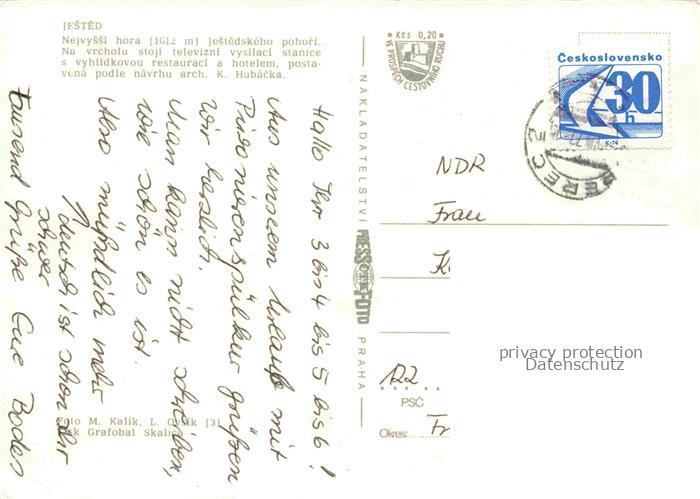 JEŠTĚD
Nejvyšší hora (1012 m) Ještědského pohoří.
Na vrcholu stojí televizní vysílací stanice
s vyhlídkovou restaurací a hotelem, posta-
vená podle návrhu arch. K. Hubáčka.
Kčs 0,20
VE PROSPĚCH CESTOVNÍHO RUCHU
Československo
30
h
Hallo Ihr 3 bis 4 bis 5 bis 6!
Aus unserem Urlaub mit
grüßen
wir herzlich.
Man kann nicht schreiben,
wie schön es ist.
Also mündlich mehr
deutsch ist schon sehr
schwer
Tausend Grüße Eure Bodes
NAKLADATELSTVÍ
PRESSFOTO
PRAHA
NDR
Frau
122
PSČ
Okres:
Fr
privacy protection
Datenschutz
Foto M. Kalík, L. [3]
Tisk Grafobal Skalica